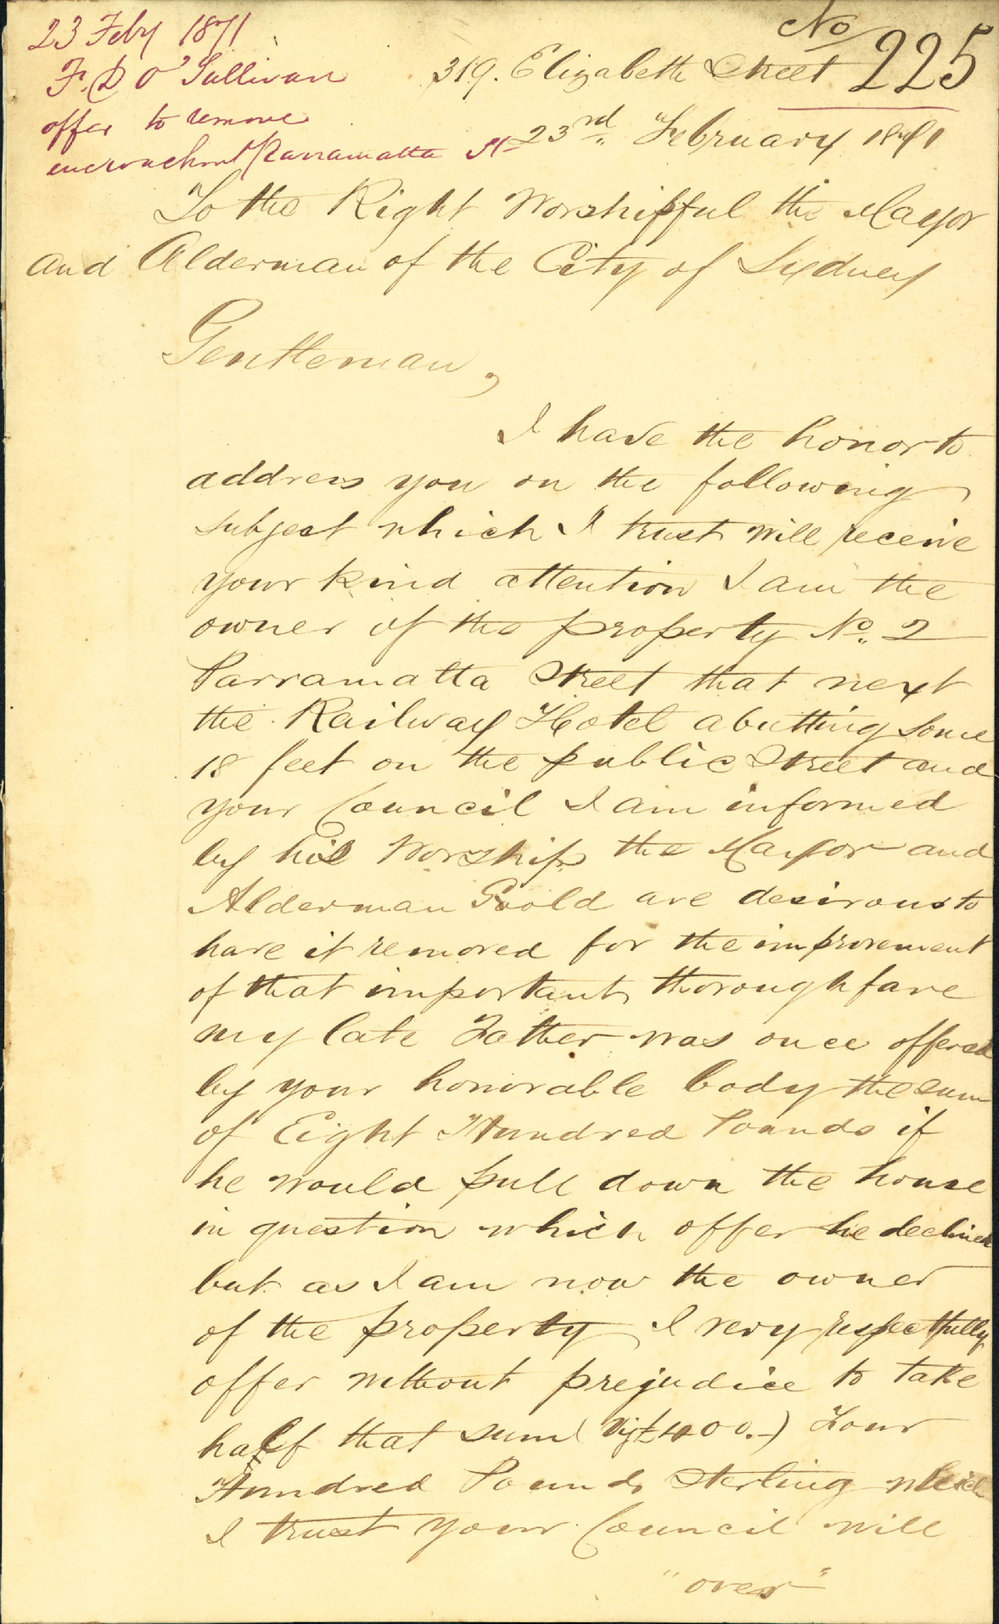 23 Feby 1871
F. D O'Sullivan
offer to remove
encroachmt Parramatta St
No 225
319. Elizabeth Street
23rd February 1871
To the Right Worshipful the Mayor
and Alderman of the City of Sydney
Gentleman,
I have the honor to
address you on the following
subject which I trust will receive
your kind attention I am the
owner of the property No. 2
Parramatta Street that next
the Railway Hotel abutting some
18 feet on the public Street and
your Council I am informed
by his Worship the Mayor and
Alderman Goold are desirous to
have it removed for the improvement
of that important thoroughfare
my late Father was once offered
by your honorable body the sum
of Eight Hundred Pounds if
he would pull down the house
in question which offer he declined
but as I am now the owner
of the property I very respectfully
offer without prejudice to take
half that sum (Viz £400.-) Four
Hundred Pounds Sterling which
I trust your Council will
"over"